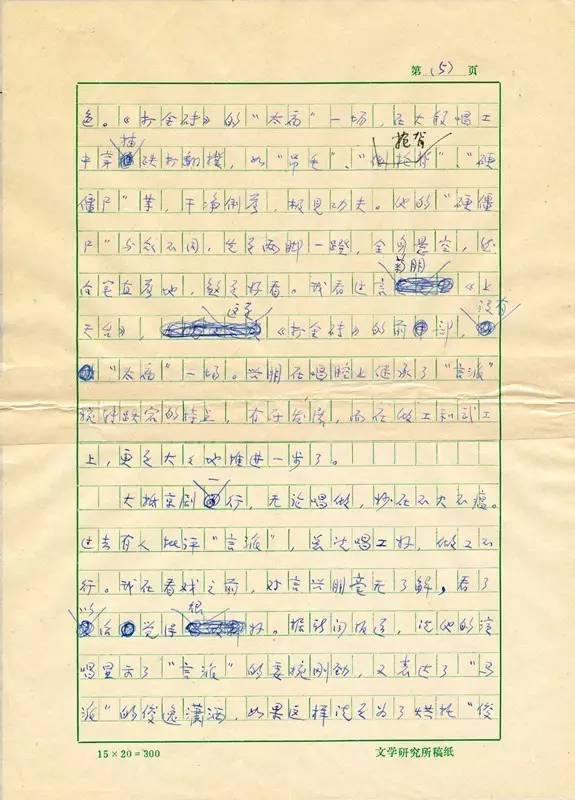 第(5)页
色。《打金砖》的“太庙”一场，在大段唱工
中穿插跌扑翻撲，如“吊毛”、“抢背”、“硬
僵尸”等，干净俐落，极见功夫。他的“硬僵
尸”与众不同，先是两脚一蹬，全身悬空，然
后笔直落地，煞是好看。我看过言菊朋《上
天台》，这是《打金砖》的前部，没有
“太庙”一场。兴朋在唱腔上继承了“言派”
婉转跌宕的特点，有所发展，而在做工和武工
上，更是大大地推进一步了。
大抵京剧一行，无论唱做，妙在不火不瘟。
过去有人批评“言派”，总说唱工好，做工不
行。我在看戏之前，对言兴朋毫无了解，看了
以后觉得很好。据新闻报道，说他的演
唱显示了“言派”的委婉刚劲，又表达了“马
派”的俊逸潇洒，如果这样说是为了烘托“俊
15×20=300
文学研究所稿纸